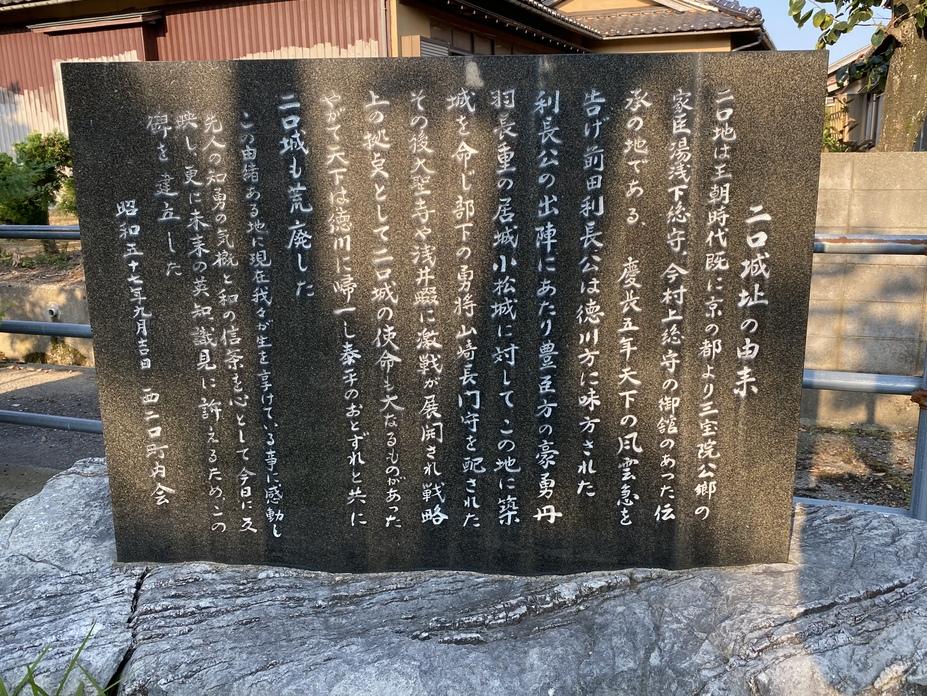 二口城址の由来
二口地は王朝時代既に京の都より三宝院公郷の
家臣湯浅下総守、今村上総守の御舘のあった伝
承の地である。 慶長五年天下の風雲急を
告げ前田利長公は徳川方に味方された
利長公の出陣にあたり豊臣方の豪勇丹
羽長重の居城小松城に対してこの地に築
城を命じ部下の勇将山崎長門守を配された
その後大聖寺や浅井畷に激戦が展開され戦略
上の拠点として二口城の使命も大なるものがあった
やがて天下は徳川に帰一し泰平のおとずれと共に
二口城も荒廃した
この由緒ある地に現在我々が生を享けている事に感動し
先人の知勇の気概と和の信条を心として今日に反
映し更に未来の英知識見に訴えるためこの
碑を建立した
昭和五十七年九月吉日 西二口町内会